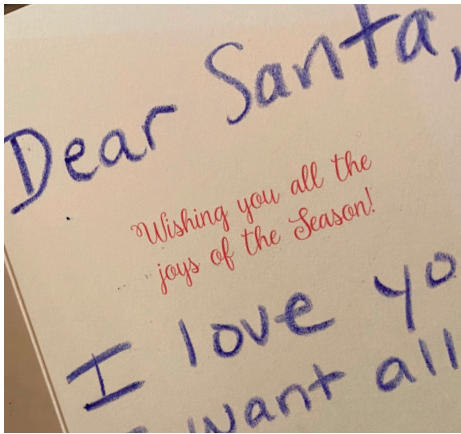 Dear Santa,
Wishing you all the
joys of the Season!
I love yo
want all